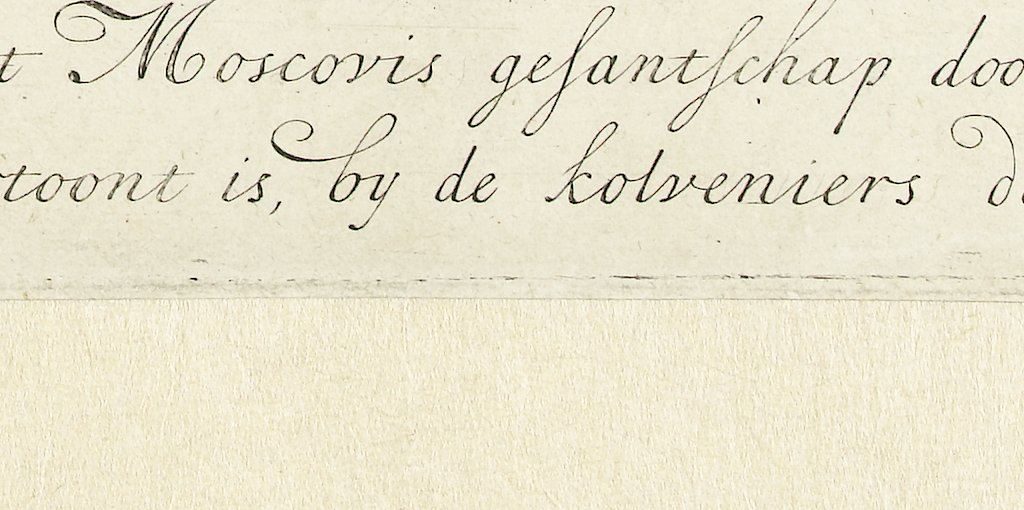 t Moscovis gesantschap doo
rtoont is, by de kolveniers d